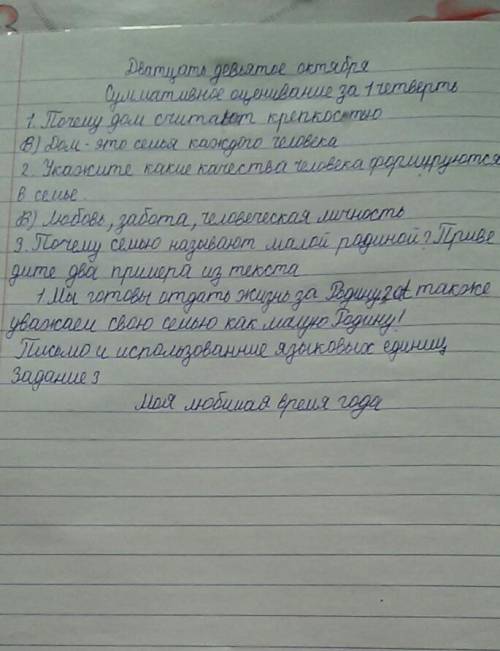 Дватцать девьятое октября
Суммативное оценивание за 1 четверть
1. Почему дом считают крепкостью
В) Дом - это семья каждого человека
2. Укажите какие качества человека формируются
в семье.
В) Любовь, забота, человеческая личность
3. Почему семью называют малой радиной? Приве
дите два примера из текста
1. Мы готовы отдать жизнь за Родину, также
уважаем свою семью как малую Родину!
Письмо и использованние языковых единиц
Задание 3
Моя любимая время года